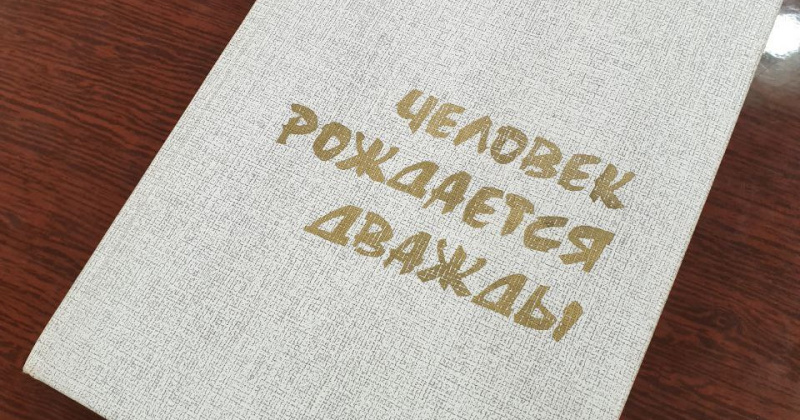 ЧЕЛОВЕК
РОЖДАЕТСЯ
ДВАЖДЫ